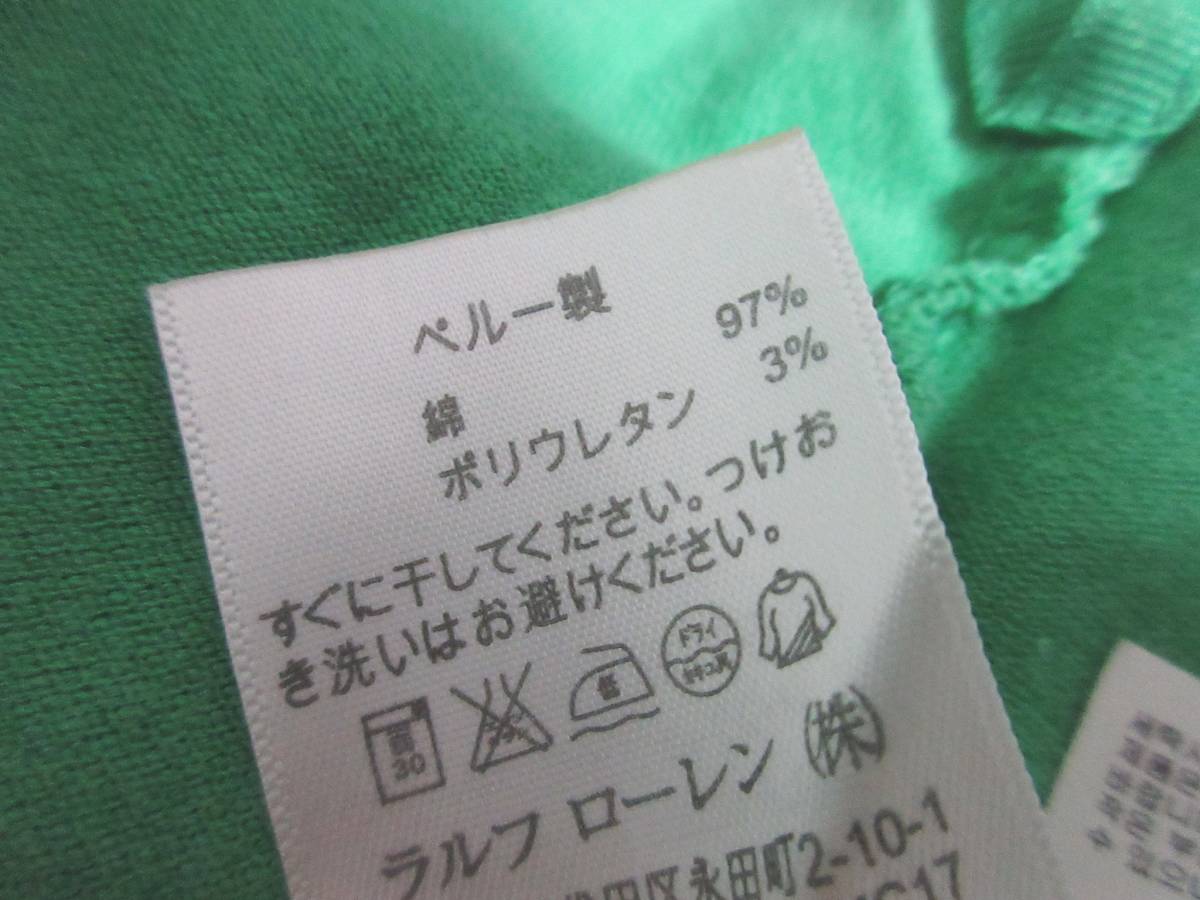 ペルー製
綿 97%
ポリウレタン 3%
すぐに干してください。つけお
き洗いはお避けください。
30
低
ドライ
ラルフ ローレン ㈱
代田区永田町2-10-1
17